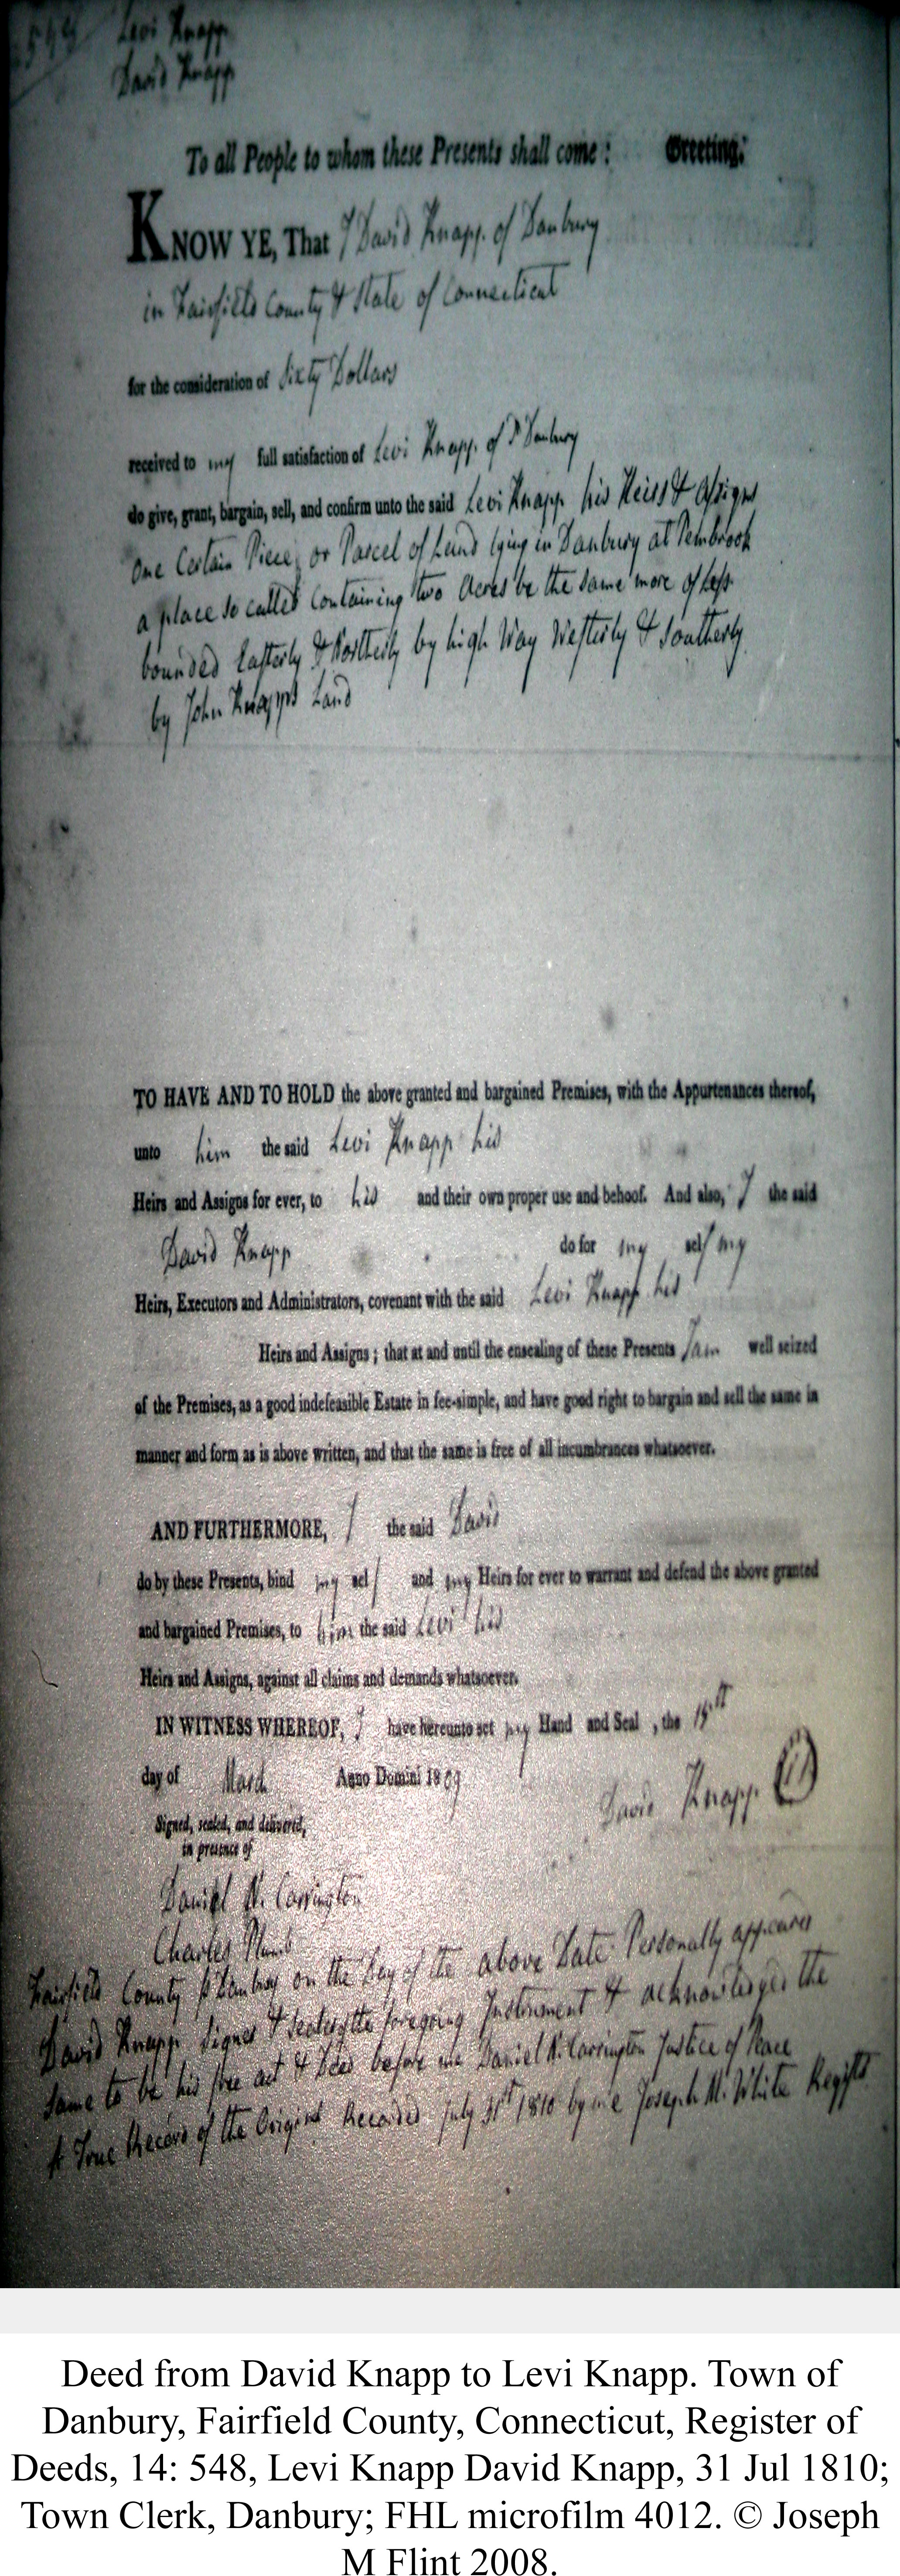 Levi Knapp
David Knapp
To all People to whom these Presents shall come: Greeting:
KNOW YE, That I David Knapp of Danbury
in Fairfield County & State of Connecticut
for the consideration of Sixty Dollars
received to my full satisfaction of Levi Knapp of sd Danbury
do give, grant, bargain, sell, and confirm unto the said Levi Knapp his Heirs & assigns
One Certain Piece or Parcel of Land lying in Danbury at Pembrook
a place so called Containing two Acres be the same more of less
bounded Easterly & Northerly by high Way Westerly & Southerly
by John Knapps Land
TO HAVE AND TO HOLD the above granted and bargained Premises, with the Appurtenances thereof,
unto him the said Levi Knapp his
Heirs and Assigns for ever, to his and their own proper use and behoof. And also, I the said
David Knapp do for my self my
Heirs, Executors and Administrators, covenant with the said Levi Knapp his
Heirs and Assigns; that at and until the ensealing of these Presents I am well seized
of the Premises, as a good indefeasible Estate in fee-simple, and have good right to bargain and sell the same in
manner and form as is above written, and that the same is free of all incumbrances whatsoever.
AND FURTHERMORE, I the said David
do by these Presents, bind my self and my Heirs for ever to warrant and defend the above granted
and bargained Premises, to him the said Levi his
Heirs and Assigns, against all claims and demands whatsoever.
IN WITNESS WHEREOF, I have hereunto set my Hand and Seal, the
day of March Anno Domini 1809
David Knapp
Signed, sealed, and delivered,
in presence of
Daniel N. Carrington
Charles Plumb
Fairfield County ss Danbury on the Day of the above Date Personally appeared
David Knapp Signer & Sealer of the foregoing Instrument & acknowledged the
Same to be his free act & Deed before me Daniel N. Carrington Justice of Peace
A True Record of the Original Recorded July 31st 1810 by me Joseph M. White Regist
Deed from David Knapp to Levi Knapp. Town of
Danbury, Fairfield County, Connecticut, Register of
Deeds, 14: 548, Levi Knapp David Knapp, 31 Jul 1810;
Town Clerk, Danbury; FHL microfilm 4012. © Joseph
M Flint 2008.